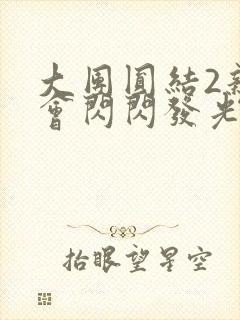 大團圓結2
會閃閃發光
抬眼望星空